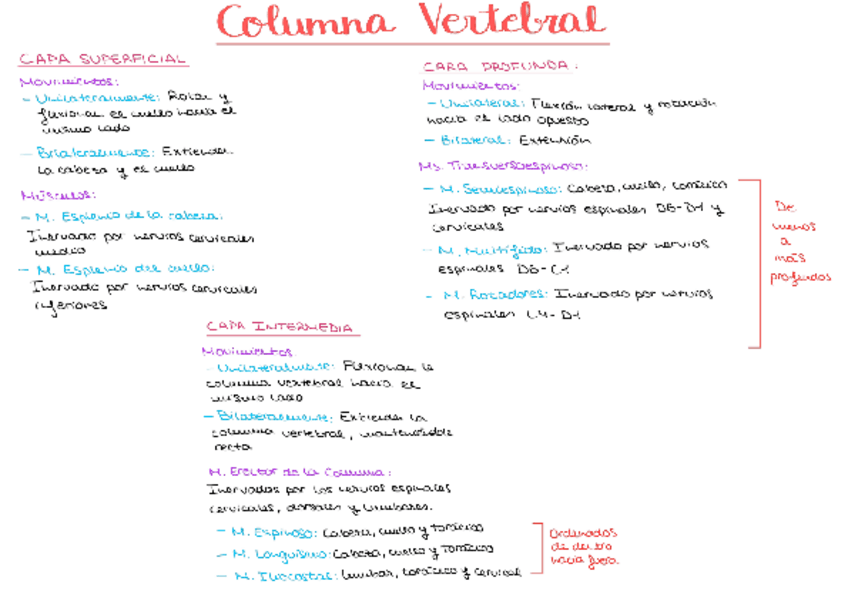 Columna Vertebral
CAPA SUPERFICIAL
Movimientos:
- Unilateralmente: Rotar y
flexionar el cuello hacia el
mismo lado
- Bilateralmente: Extender
la cabeza y el cuello
Músculos:
- M. Esplenio de la cabeza:
Inervado por nervios cervicales
medios
- M. Esplenio del cuello:
Inervado por nervios cervicales
inferiores
CAPA INTERMEDIA
Movimientos
- Unilateralmente: Flexionar la
columna vertebral hacia el
mismo lado
- Bilateralmente: Extender la
columna vertebral, manteniéndola
recta
M. Erector de la Columna:
Inervados por los nervios espinales
cervicales, dorsales y lumbares.
- M. Espinoso: Cabeza, cuello y torácico
- M. Longuísimo: Cabeza, cuello y torácico
- M. Iliocostal: lumbar, torácico y cervical
Ordenados
de dentro
hacia fuera.
CAPA PROFUNDA:
Movimientos:
- Unilateral: Flexión lateral y rotación
hacia el lado opuesto
- Bilateral: Extensión
Ms. Transversoespinosos:
- M. Semiespinoso: Cabeza, cuello, torácico
Inervado por nervios espinales D6-D1 y
cervicales
- M. Multífido: Inervado por nervios
espinales
- M. Rotadores: Inervado por nervios
espinales L4-D1
De
menos
a
más
profundos